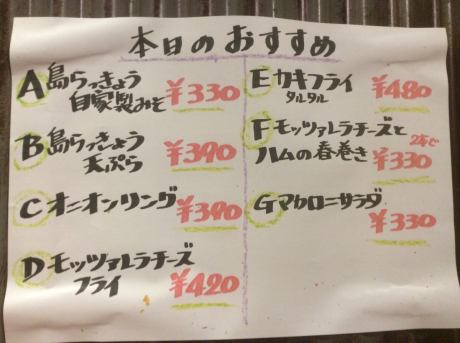 本日のおすすめ
A 島らっきょう
自家製みそ ¥330
B 島らっきょう
天ぷら ¥390
C オニオンリング ¥390
D モッツァレラチーズ
フライ ¥420
E カキフライ
タルタル ¥480
F モッツァレラチーズと
ハムの春巻き 2本で ¥330
G マカロニサラダ
¥330